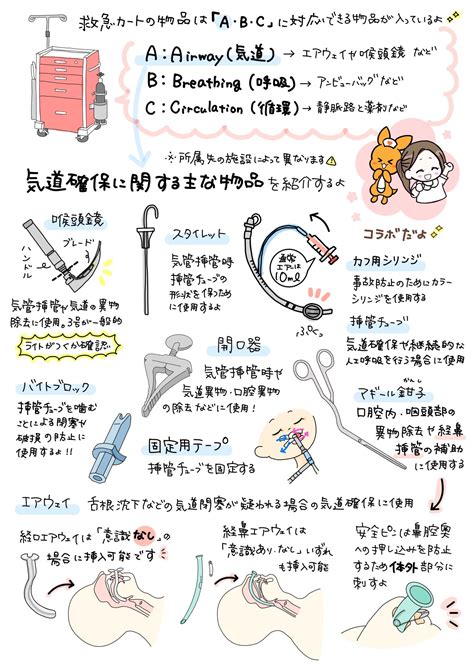 救急カートの物品は「A・B・C」に対応できる物品が入っているよ
A:Airway(気道)→エアウェイや喉頭鏡 など
B:Breathing(呼吸)→アンビューバッグなど
C:Circulation(循環)→静脈路と薬剤など
※所属先の施設によって異なります
気道確保に関する主な物品を紹介するよ
コラボだよ
喉頭鏡
ブレード
ハンドル
気管挿管や気道の異物
除去に使用。3号が一般的
ライトがつくか確認
スタイレット
気管挿管時
挿管チューブの
形状を保つため
に使用する
通常
エアは
10ml
カフ用シリンジ
事故防止のためにカラー
シリンジを使用する
挿管チューブ
気道確保や継続的な
人工呼吸を行う場合に使用
開口器
気管挿管時や
気道異物・口腔異物
の除去などに使用!
バイトブロック
挿管チューブを噛む
ことによる閉塞や
破損の防止に
使用するよ!!
固定用テープ
挿管チューブを固定する
マギール鉗子
かんし
口腔内・咽頭部の
異物除去や経鼻
挿管の補助
に使用する
エアウェイ
舌根沈下などの気道閉塞が疑われる場合の気道確保に使用
経口エアウェイは「意識なし」の
場合に挿入可能です
経鼻エアウェイは
「意識あり・なし」いずれ
も挿入可能
安全ピンは鼻腔奥
への押し込みを防止
するため体外部分に
刺すよ